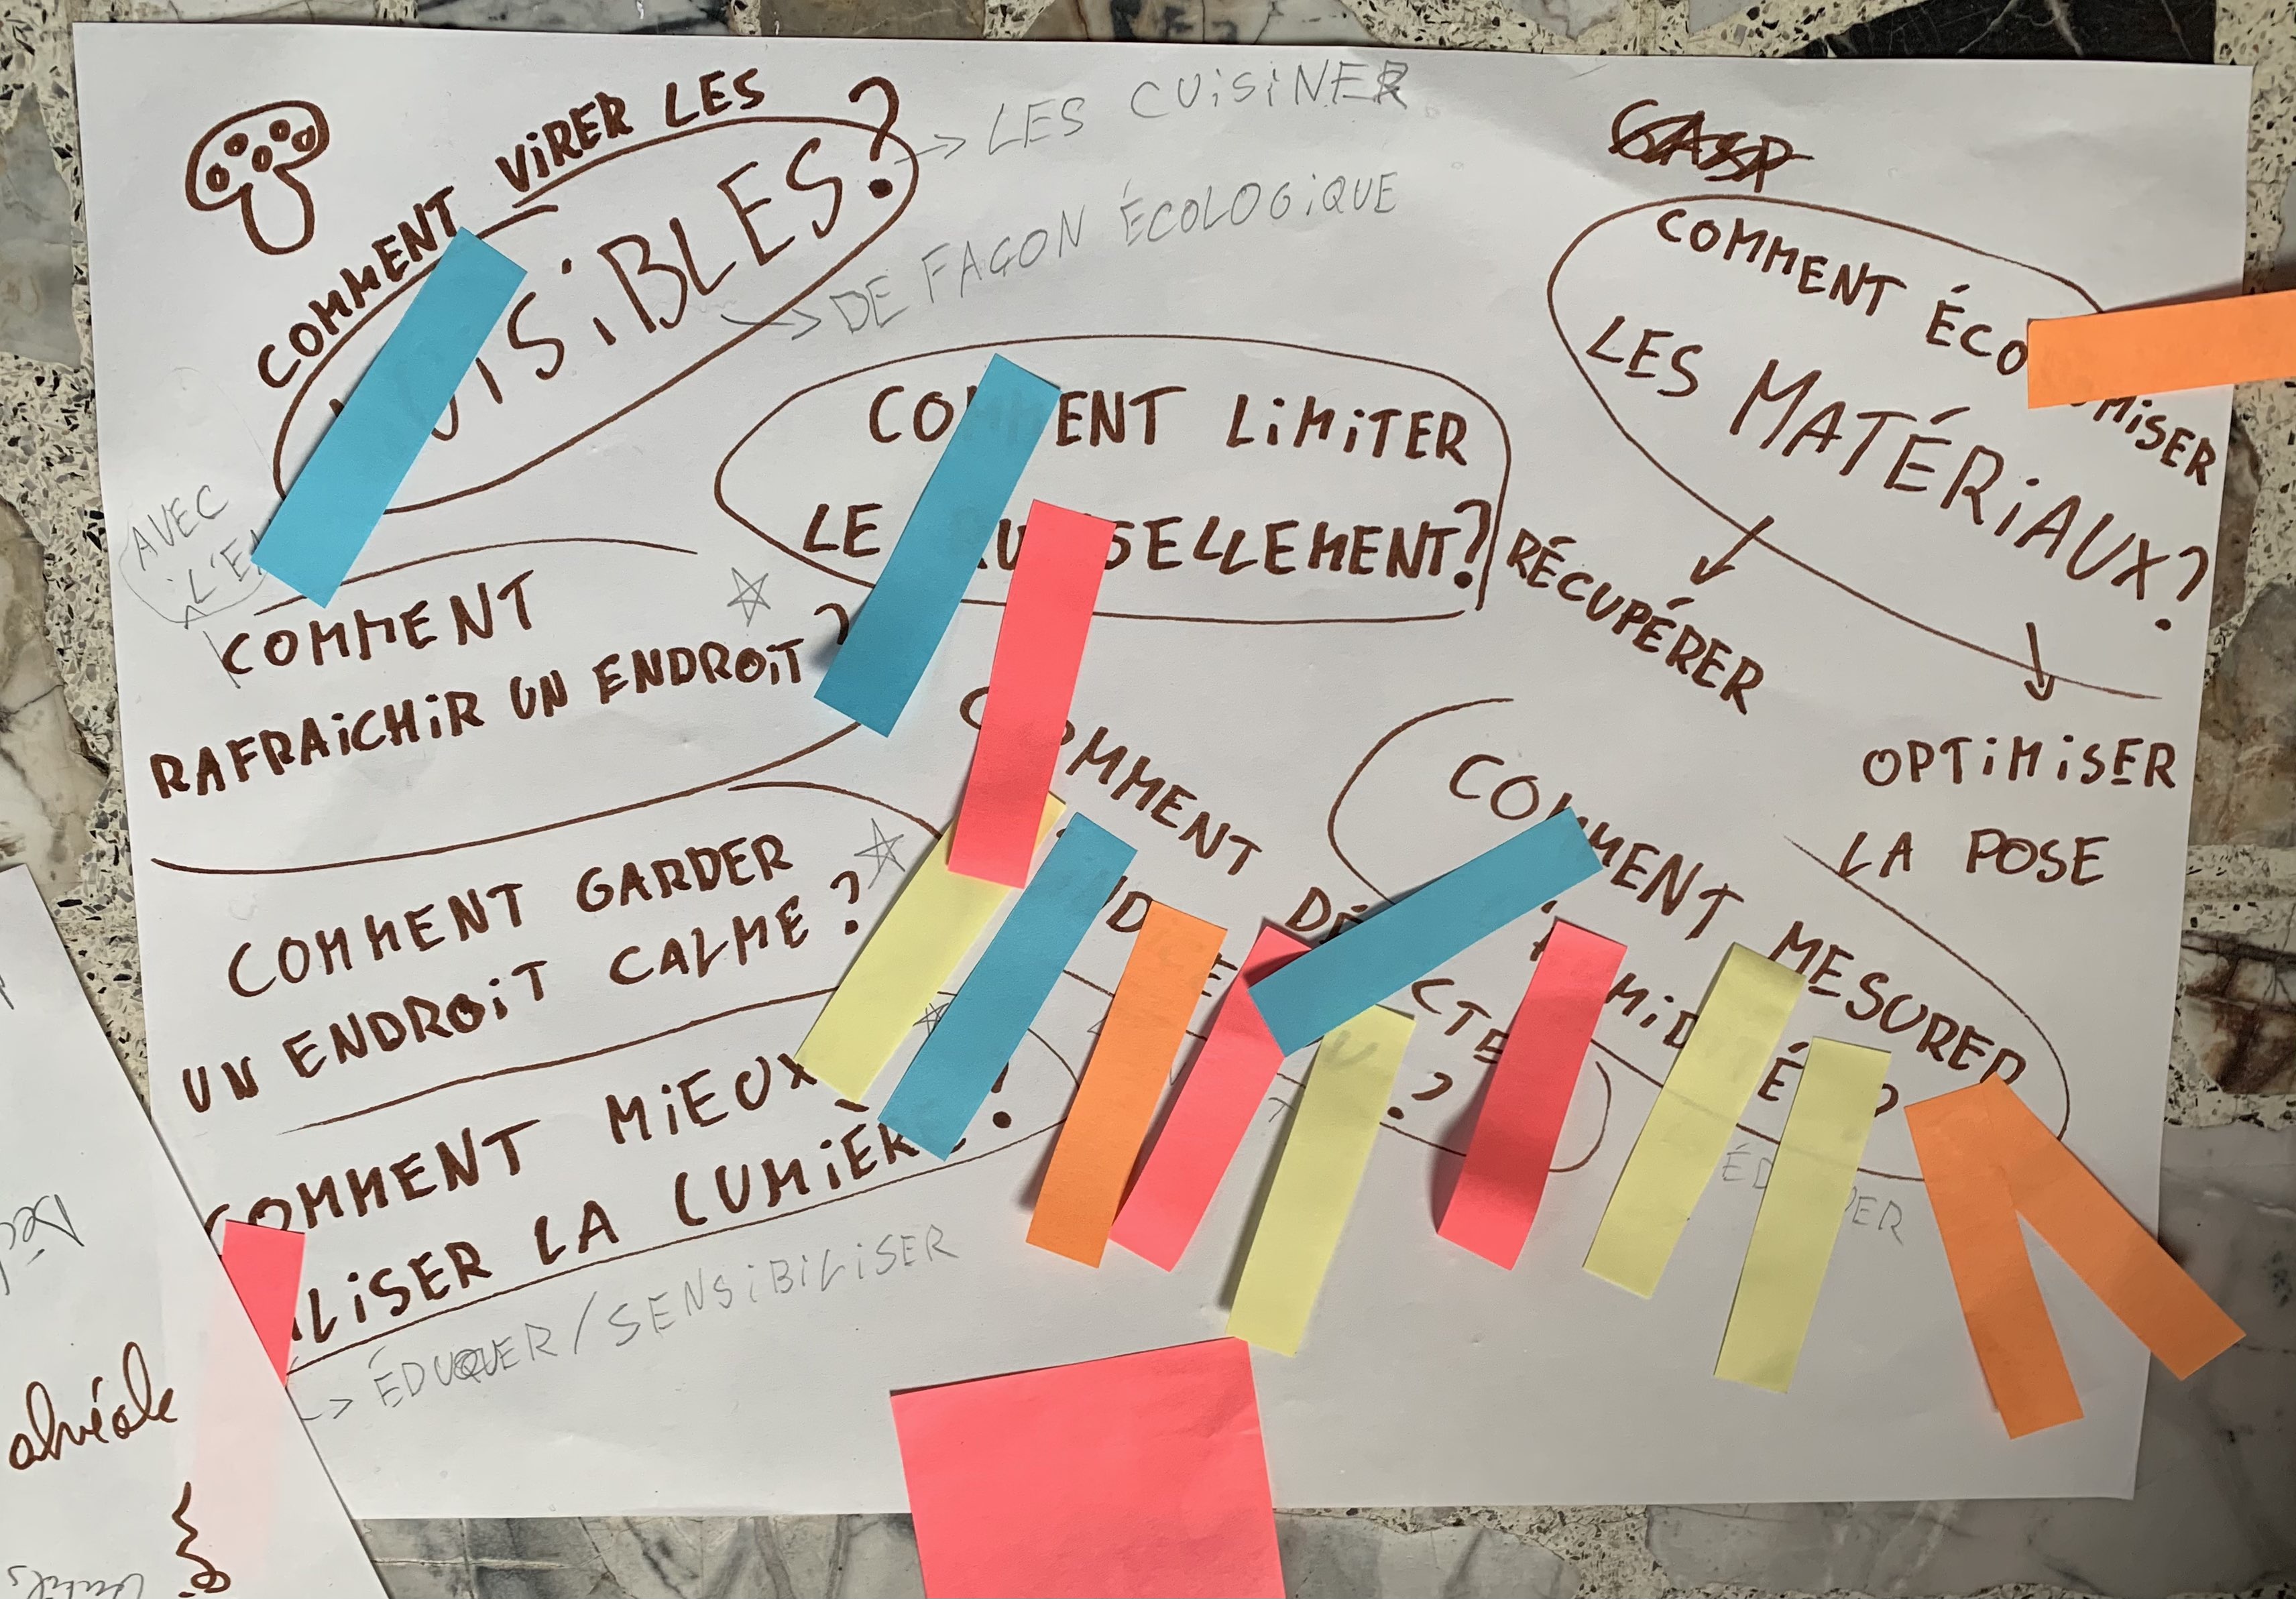 COMMENT VIRER LES
UISIBLES?
→ LES CUISINER
→ DE FAÇON ÉCOLOGIQUE
COMMENT ÉCONOMISER
LES MATÉRIAUX?
RÉCUPÉRER
OPTIMISER
LA POSE
COMMENT LIMITER
LE RUISSELLEMENT?
AVEC
L'EAU
COMMENT
RAFRAICHIR UN ENDROIT?
COMMENT GARDER
UN ENDROIT CALME?
COMMENT MIEUX
LISER LA LUMIÈRE?
→ ÉDUQUER/SENSIBILISER
COMMENT
COMMENT MESURER
alvéole